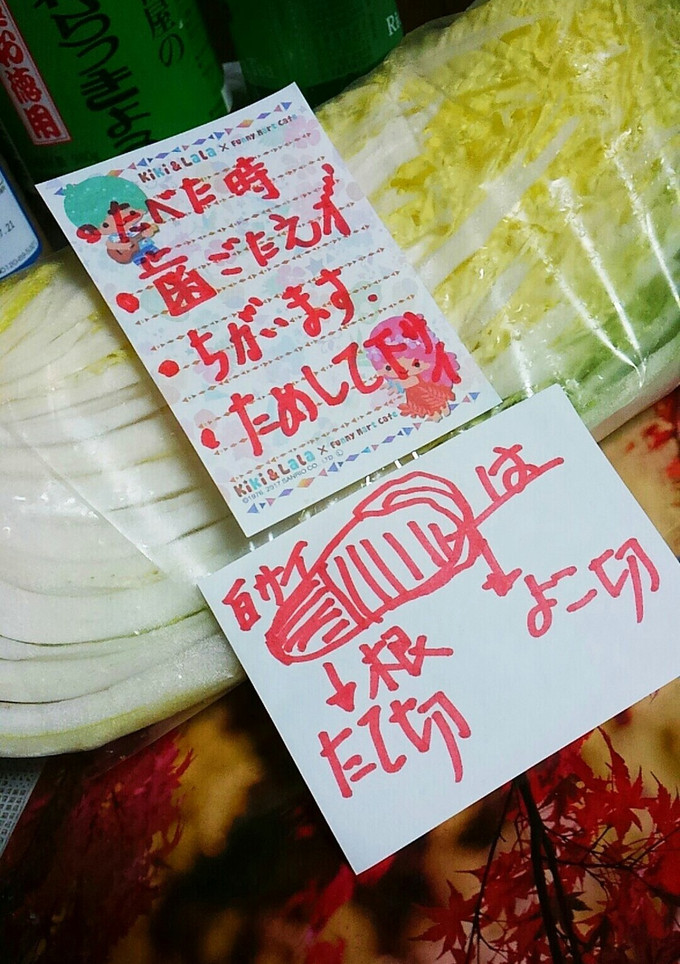 お徳用
屋の
やろうまよ
Ri
.21
Kiki & Lala × Funny Mart Cafe
・たべた時
・歯ごたえガ
・ちがいます.
・ためして下サイ
Kiki & Lala × Funny Mart Cafe
©1976, 2017 SANRIO CO., LTD.
白サイ
は
よこ切
根
たて切